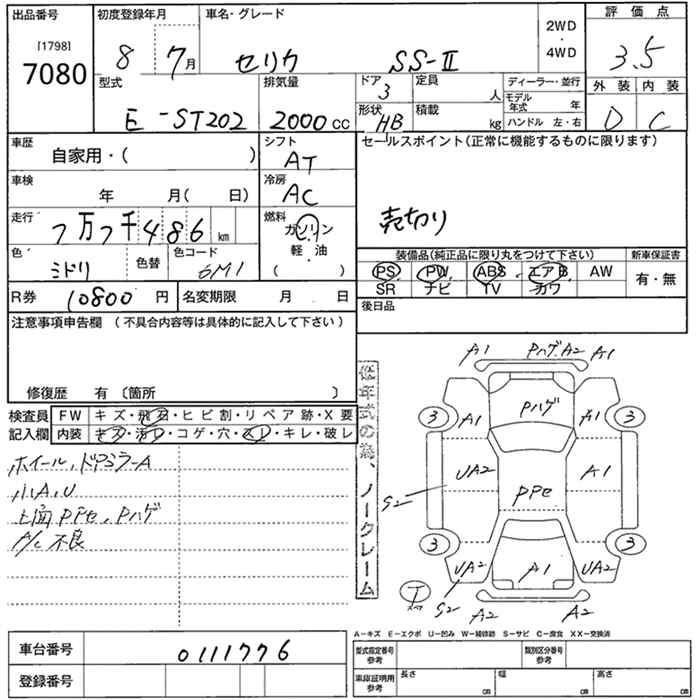 出品番号
[1798]
7080
初度登録年月
8 7月
車名・グレード
セリカ SS-II
2WD
・
4WD
評価点
3.5
外装 内装
D C
型式
E-ST202
排気量
2000cc
ドア
3
形状
HB
定員
人
積載
kg
ディーラー・並行
モデル年式 年
ハンドル 左・右
車歴
自家用・( )
車検
年 月( 日)
走行
7万7千486km
色
ミドリ
色替
色コード
6M1
シフト
AT
冷房
AC
燃料
ガソリン
・
軽油
( )
セールスポイント(正常に機能するものに限ります)
売切り
装備品(純正品に限り丸をつけて下さい)
PS PW ABS エアB AW
SR ナビ TV カワ
新車保証書
有・無
R券 10800円
名変期限 月 日
後日品
注意事項申告欄 (不具合内容等は具体的に記入して下さい)
修復歴 有〔箇所 〕
検査員記入欄
FW キズ・飛石・ヒビ割・リペア跡・X要
内装 キズ・汚レ・コゲ・穴・スレ・キレ・破レ
ホイール、ドアミラーA
小A、U
上面PPe、Pハゲ
A/C不良
低年式の為、ノークレーム
A1 PハゲA2 A1
Pハゲ
3 A1 A1 3
UA2 A1
S2
PPe
3 3
UA2 A1 UA2
S2
A2 A2
A-キズ E-エクボ U-凹み W-補修跡 S-サビ C-腐食 XX-交換済
車台番号
0111776
登録番号
型式指定番号
参考
類別区分番号
参考
車庫証明用
参考
長さ cm
幅 cm
高さ cm